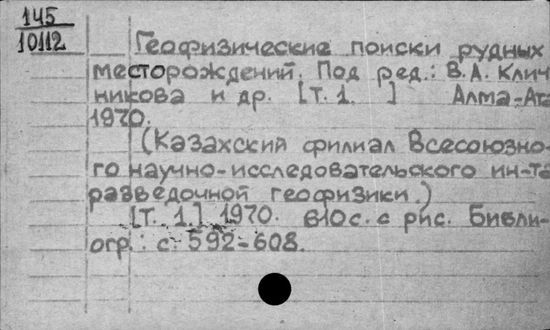 145
10112
Геофизические поиски рудных
месторождений. Под ред.: В.А. Клич
никова и др. [Т. 1. ] Алма-Ата
1970.
(Казахский филиал Всесоюзно-
го научно-исследовательского ин-та
разведочной геофизики.)
[Т. 1.] 1970. 610 с. с рис. Библи-
огр.: с. 592-608.